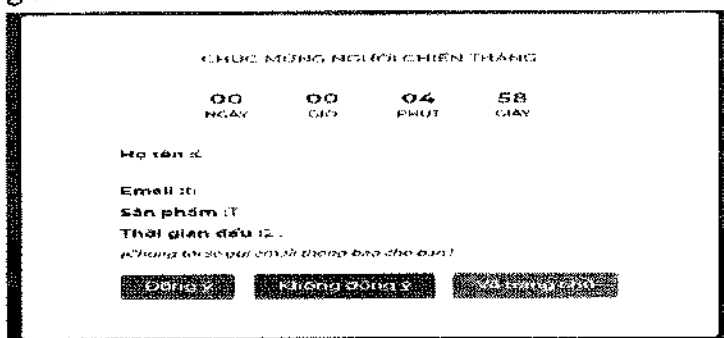 CHÚC MỪNG NGƯỜI CHIẾN THẮNG
00 00 04 58
NGÀY GIỜ PHÚT GIÂY
Họ tên :
Email :
Sản phẩm :T
Thời gian đấu :2 :
(Chúng tôi sẽ gửi email thông báo cho bạn)
Đồng ý Không đồng ý Về trang chủ